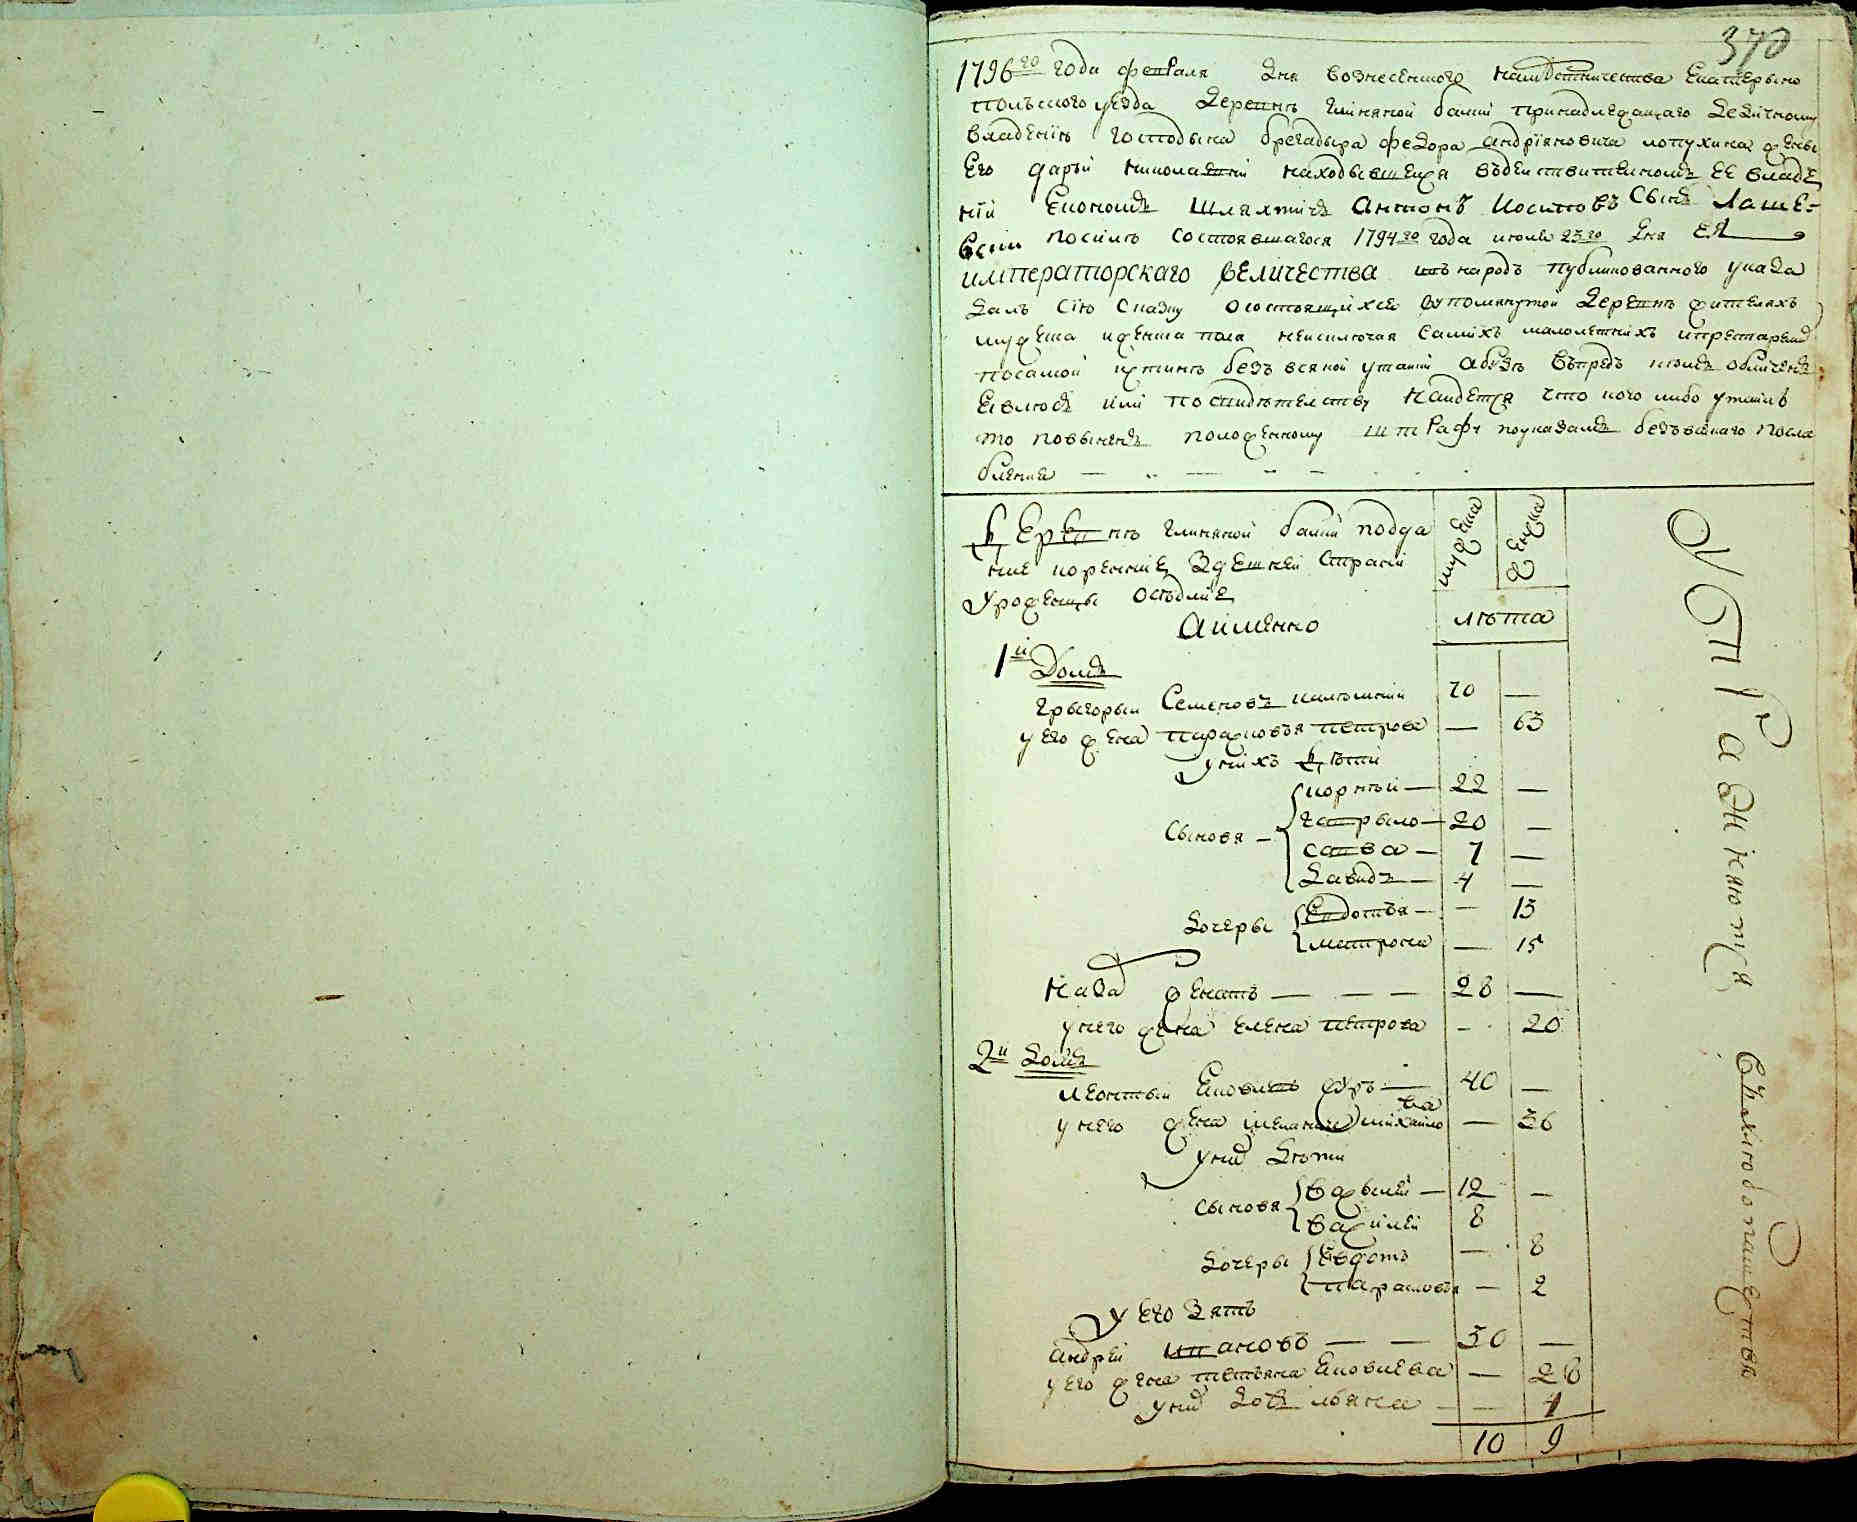 370
1796го года февраля дня вознесенского намѣстничества Екатерино
польского уезда деревнѣ глиняной балки принадлежащаго ведичному
владению господина брегадыра Федора андрияновича лопухина жены
Его дарьи николаевни находывшейся въдействителномъ ЕЕ владе
нии Економъ шляхтичъ Антонъ Иосиповъ Сынъ Лаше-
вски посилѣ состоявшагося 1794го года июня 23го дня ЕЯ
императорскаго величества въ народъ публикованного указа
далъ сию сказку осостоящихся вупомянутой деревнѣ жителяхъ
мужеска иженска пола неисключая самихъ малолетнихъ ипрестарелих
посамой истинѣ безъ всякой утайки абудѣ въпредь кемъ обличенъ
Явлюсь или посвидѣтелству найдется что кого либо утаилъ
то повыненъ положенному штрафу поуказамъ безъ всякаго посла
бления
мужеска
женска
деревнѣ глиняной балки подда
ние коренние здешней страни
уроженцы оседлие
аименно
лѣта
1й Домъ
Грыгорый Семеновъ 70 —
у его жена парасковья петрова — 63
у нихъ дѣти
Сыновя
корнѣй — 22 —
гаврыло — 20 —
савва — 7 —
давидъ — 4 —
дочеры
Евдотья — — 13
матрона — 15
женатъ — — — 28 —
у него жена елена петрова — 20
2й домъ
леонтый 40 —
у него жена мелания михайло
ва — 36
у них дѣти
сыновя
васылей — 12 —
васылей 8
дочеры
Евдотъ — 8
парасковья — 2
у его зять
андрей ивановъ — — 30 —
у его жена татьяна — 28
у них дочъ — — 1
10 9
Упражняются
въхлѣбопашествѣ